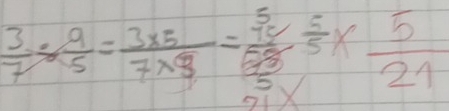 3/7 ÷ 9/5 = 3×5/7×9 = 15/63 5/5 × 5/21
5
5
21 ×